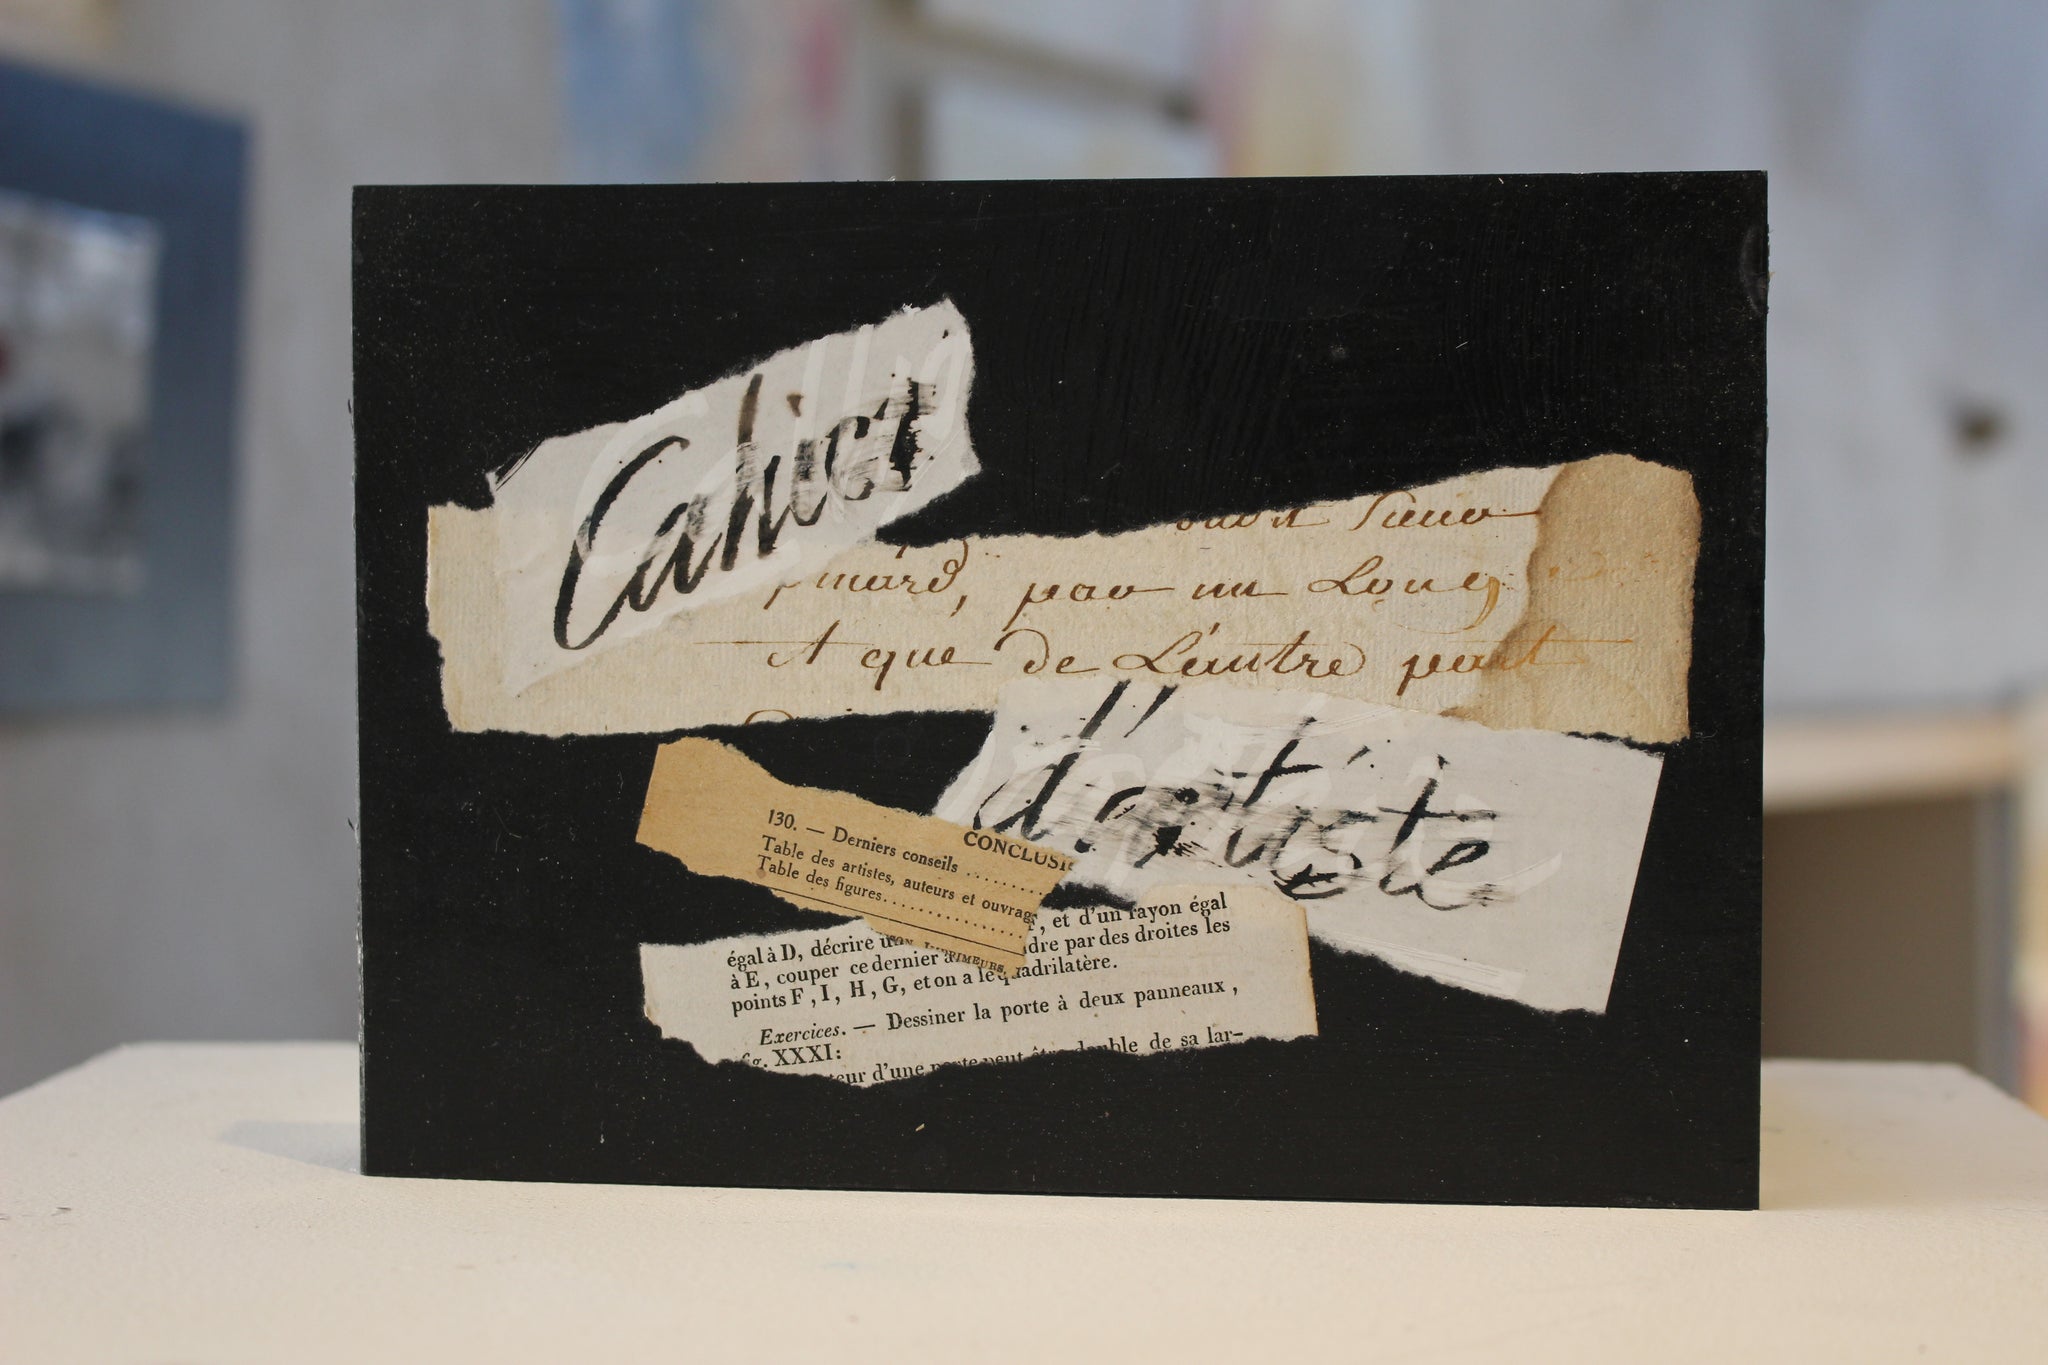 Cahier
pmard, par un Long
et que de L'autre part
d'artiste
CONCLUSI
130. — Derniers conseils ..........
Table des artistes, auteurs et ouvrag
Table des figures..............
IMEURS,
, et d'un rayon égal
égal à D, décrire dre par des droites les
à E, couper ce dernier à le quadrilatère.
points F, I, H, G, et on a le quadrilatère.
Exercices. — Dessiner la porte à deux panneaux,
fig. XXXI:
teur d'une porte peut être double de sa lar-